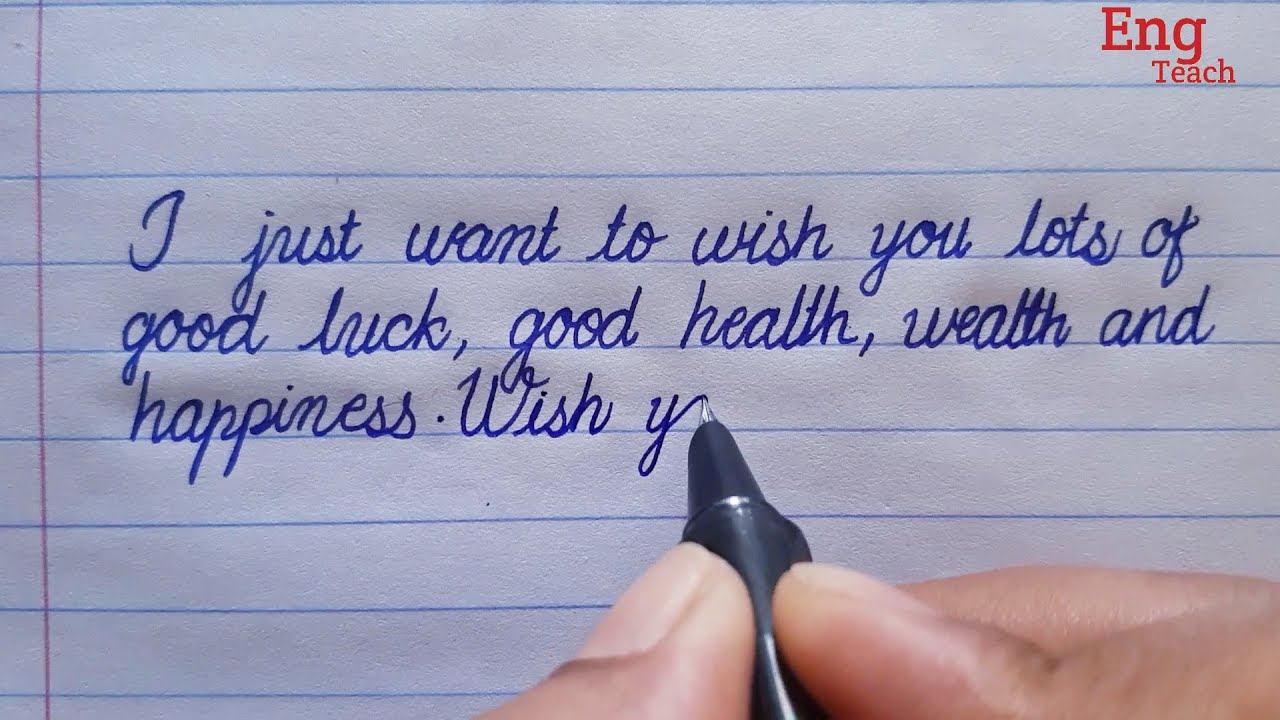 Eng
Teach
I just want to wish you lots of
good luck, good health, wealth and
happiness. Wish y